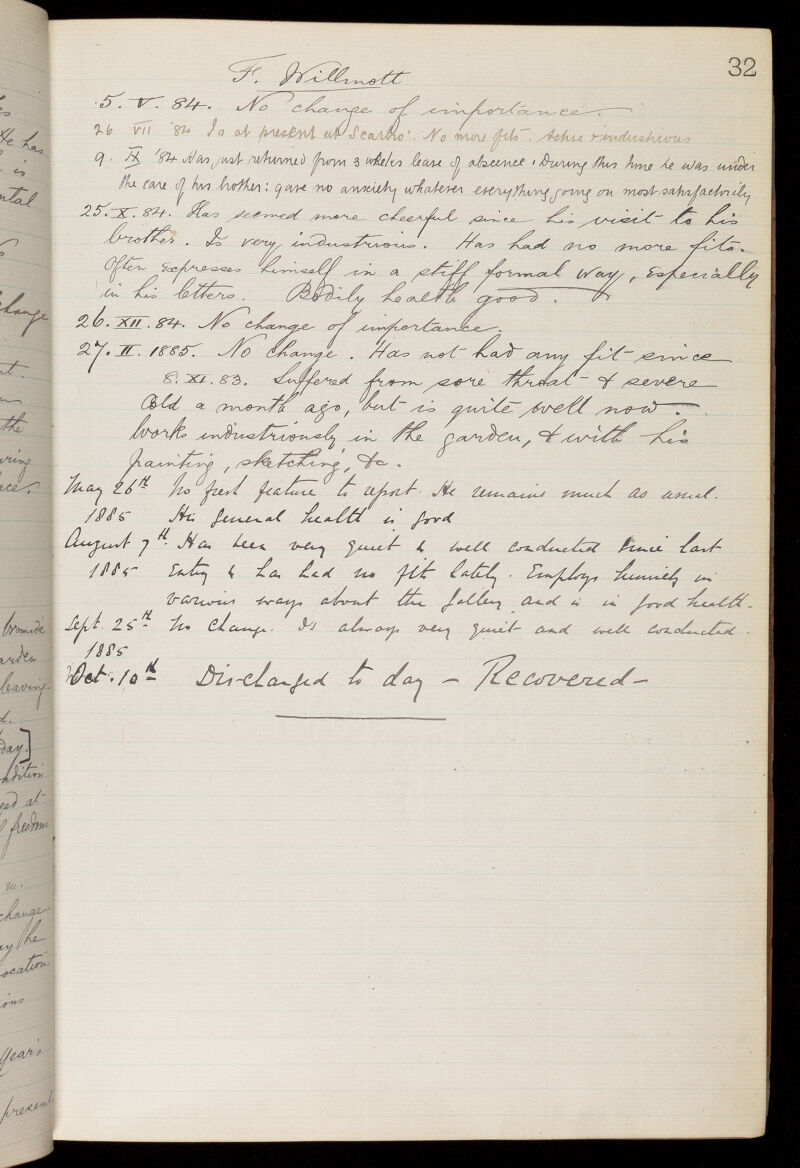 32
F. Willmott
5. V. 84. No change of importance.
26 VII '84 Is at present at Scarbro'. No more fits. Active & industrious
9. IX '84 Has just returned from 3 weeks leave of absence. During this time he was under
the care of his brother: gave no anxiety whatever everything going on most satisfactorily
25. X. 84. Has seemed more cheerful since his visit to his
brother. Is very industrious. Has had no more fits.
Often expresses himself in a stiff formal way, especially
in his letters. Bodily health good.
26. XII. 84. No change of importance.
27. II. 1885. No change. Has not had any fit since
8. XI. 83. Suffered from sore throat & severe
cold a month ago, but is quite well now.
Works industriously in the garden, & with his
painting, sketching, &c.
May 26th No fresh feature to report. He remains much as usual.
1885 His general health is good
August 7th. Has been very quiet & well conducted since last
1885 Entry & has had no fits lately. Employs himself in
various ways about the Gallery and is in good health.
Sept. 25th No change. Is always very quiet and well conducted.
1885
Oct. 10th Discharged to day – Recovered –
He has
is
change
the
Bromide
leaving
day.]
ondition
ged at
freedom
change
ay he
ocation
ions
Year's
present